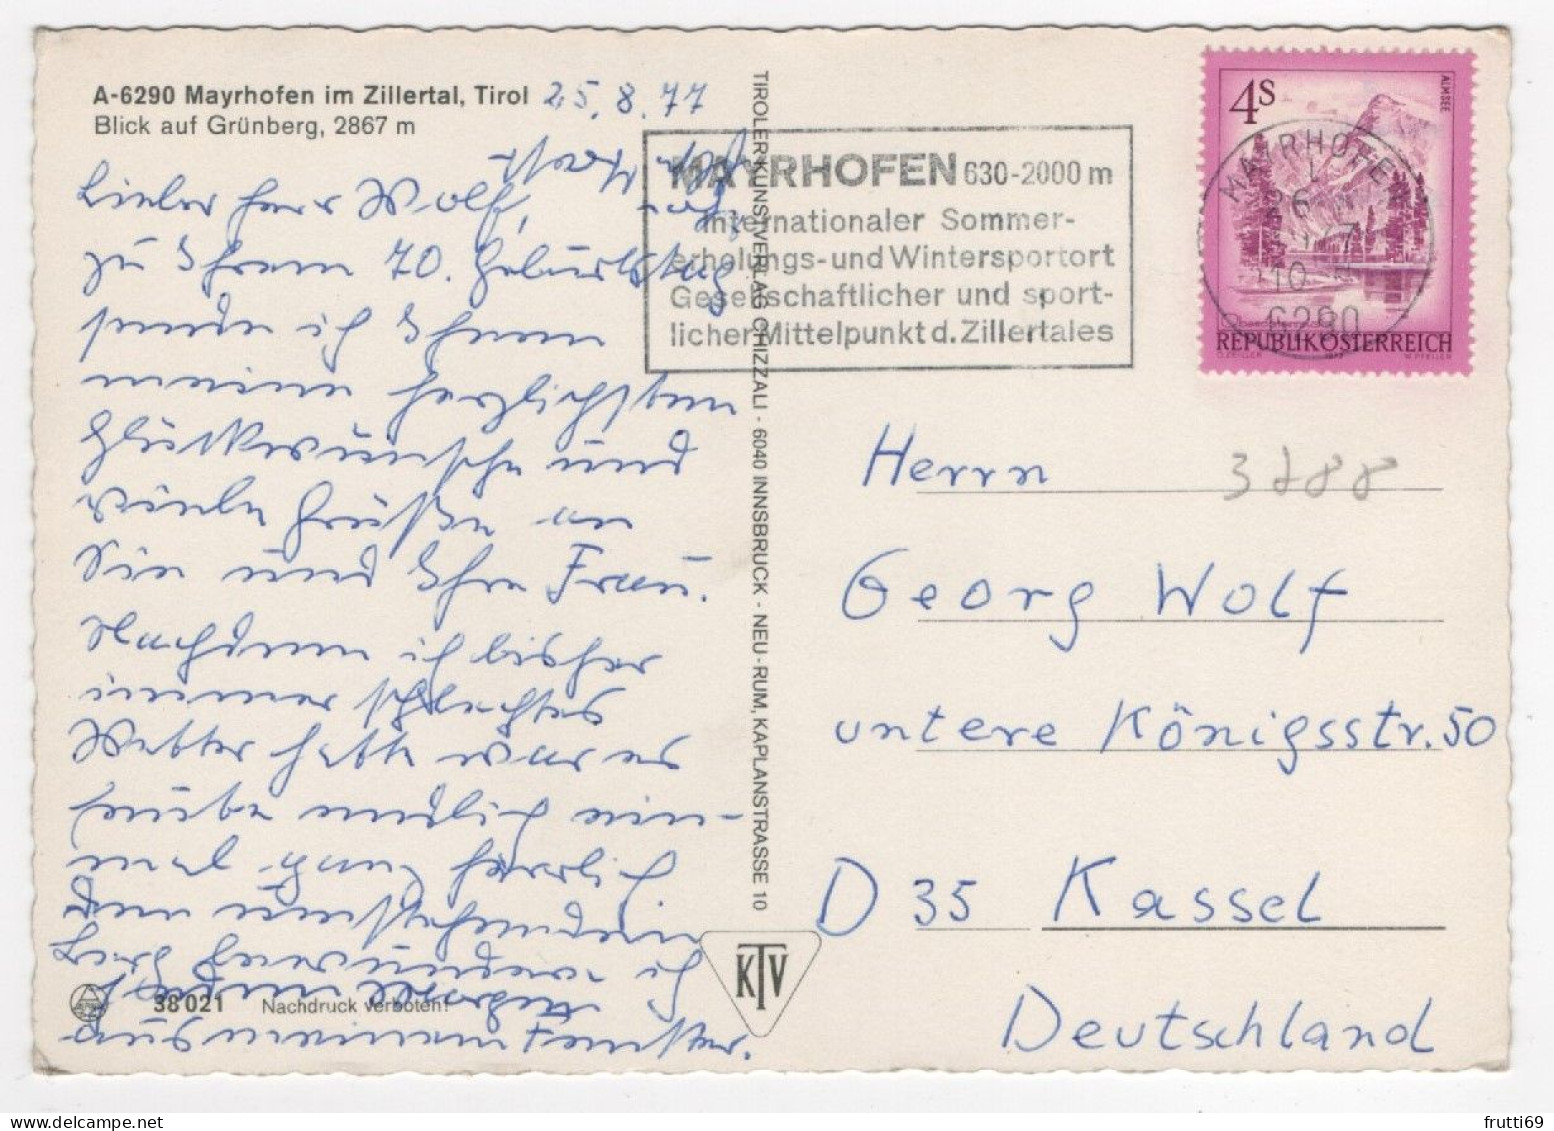 A-6290 Mayrhofen im Zillertal, Tirol 25.8.77
Blick auf Grünberg, 2867 m
Lieber Herr Wolf,
zu Ihrem 70. Geburtstag
sende ich Ihnen
meine herzlichsten
Glückwünsche und
viele Grüße an
Sie und Ihre Frau.
Nachdem ich bisher
immer schlechtes
Wetter hatte war es
heute endlich ein-
mal ganz herrlich
Den umstehenden
Berg bewundere ich
jeden Morgen
aus meinem Fenster.
38 021 Nachdruck verboten!
TIROLER KUNSTVERLAG CHIZZALI · 6040 INNSBRUCK - NEU-RUM, KAPLANSTRASSE 10
KTV
MAYRHOFEN 630-2000 m
Internationaler Sommer-
erholungs-und Wintersportort
Gesellschaftlicher und sport-
licher Mittelpunkt d. Zillertales
4S
ALMSEE
MAYRHOFEN
6290
REPUBLIK ÖSTERREICH
Herrn
3788
Georg Wolf
untere Königsstr. 50
D 35 Kassel
Deutschland
frutti69